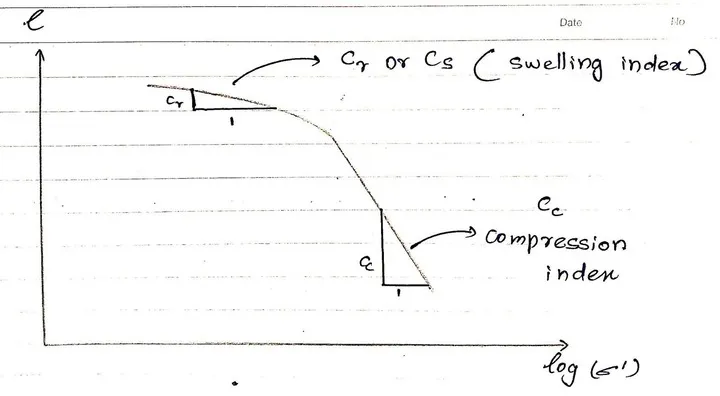 e
Date
No
Cr or Cs ( swelling index )
Cr
1
Cc
compression
index
Cc
1
log (σ')